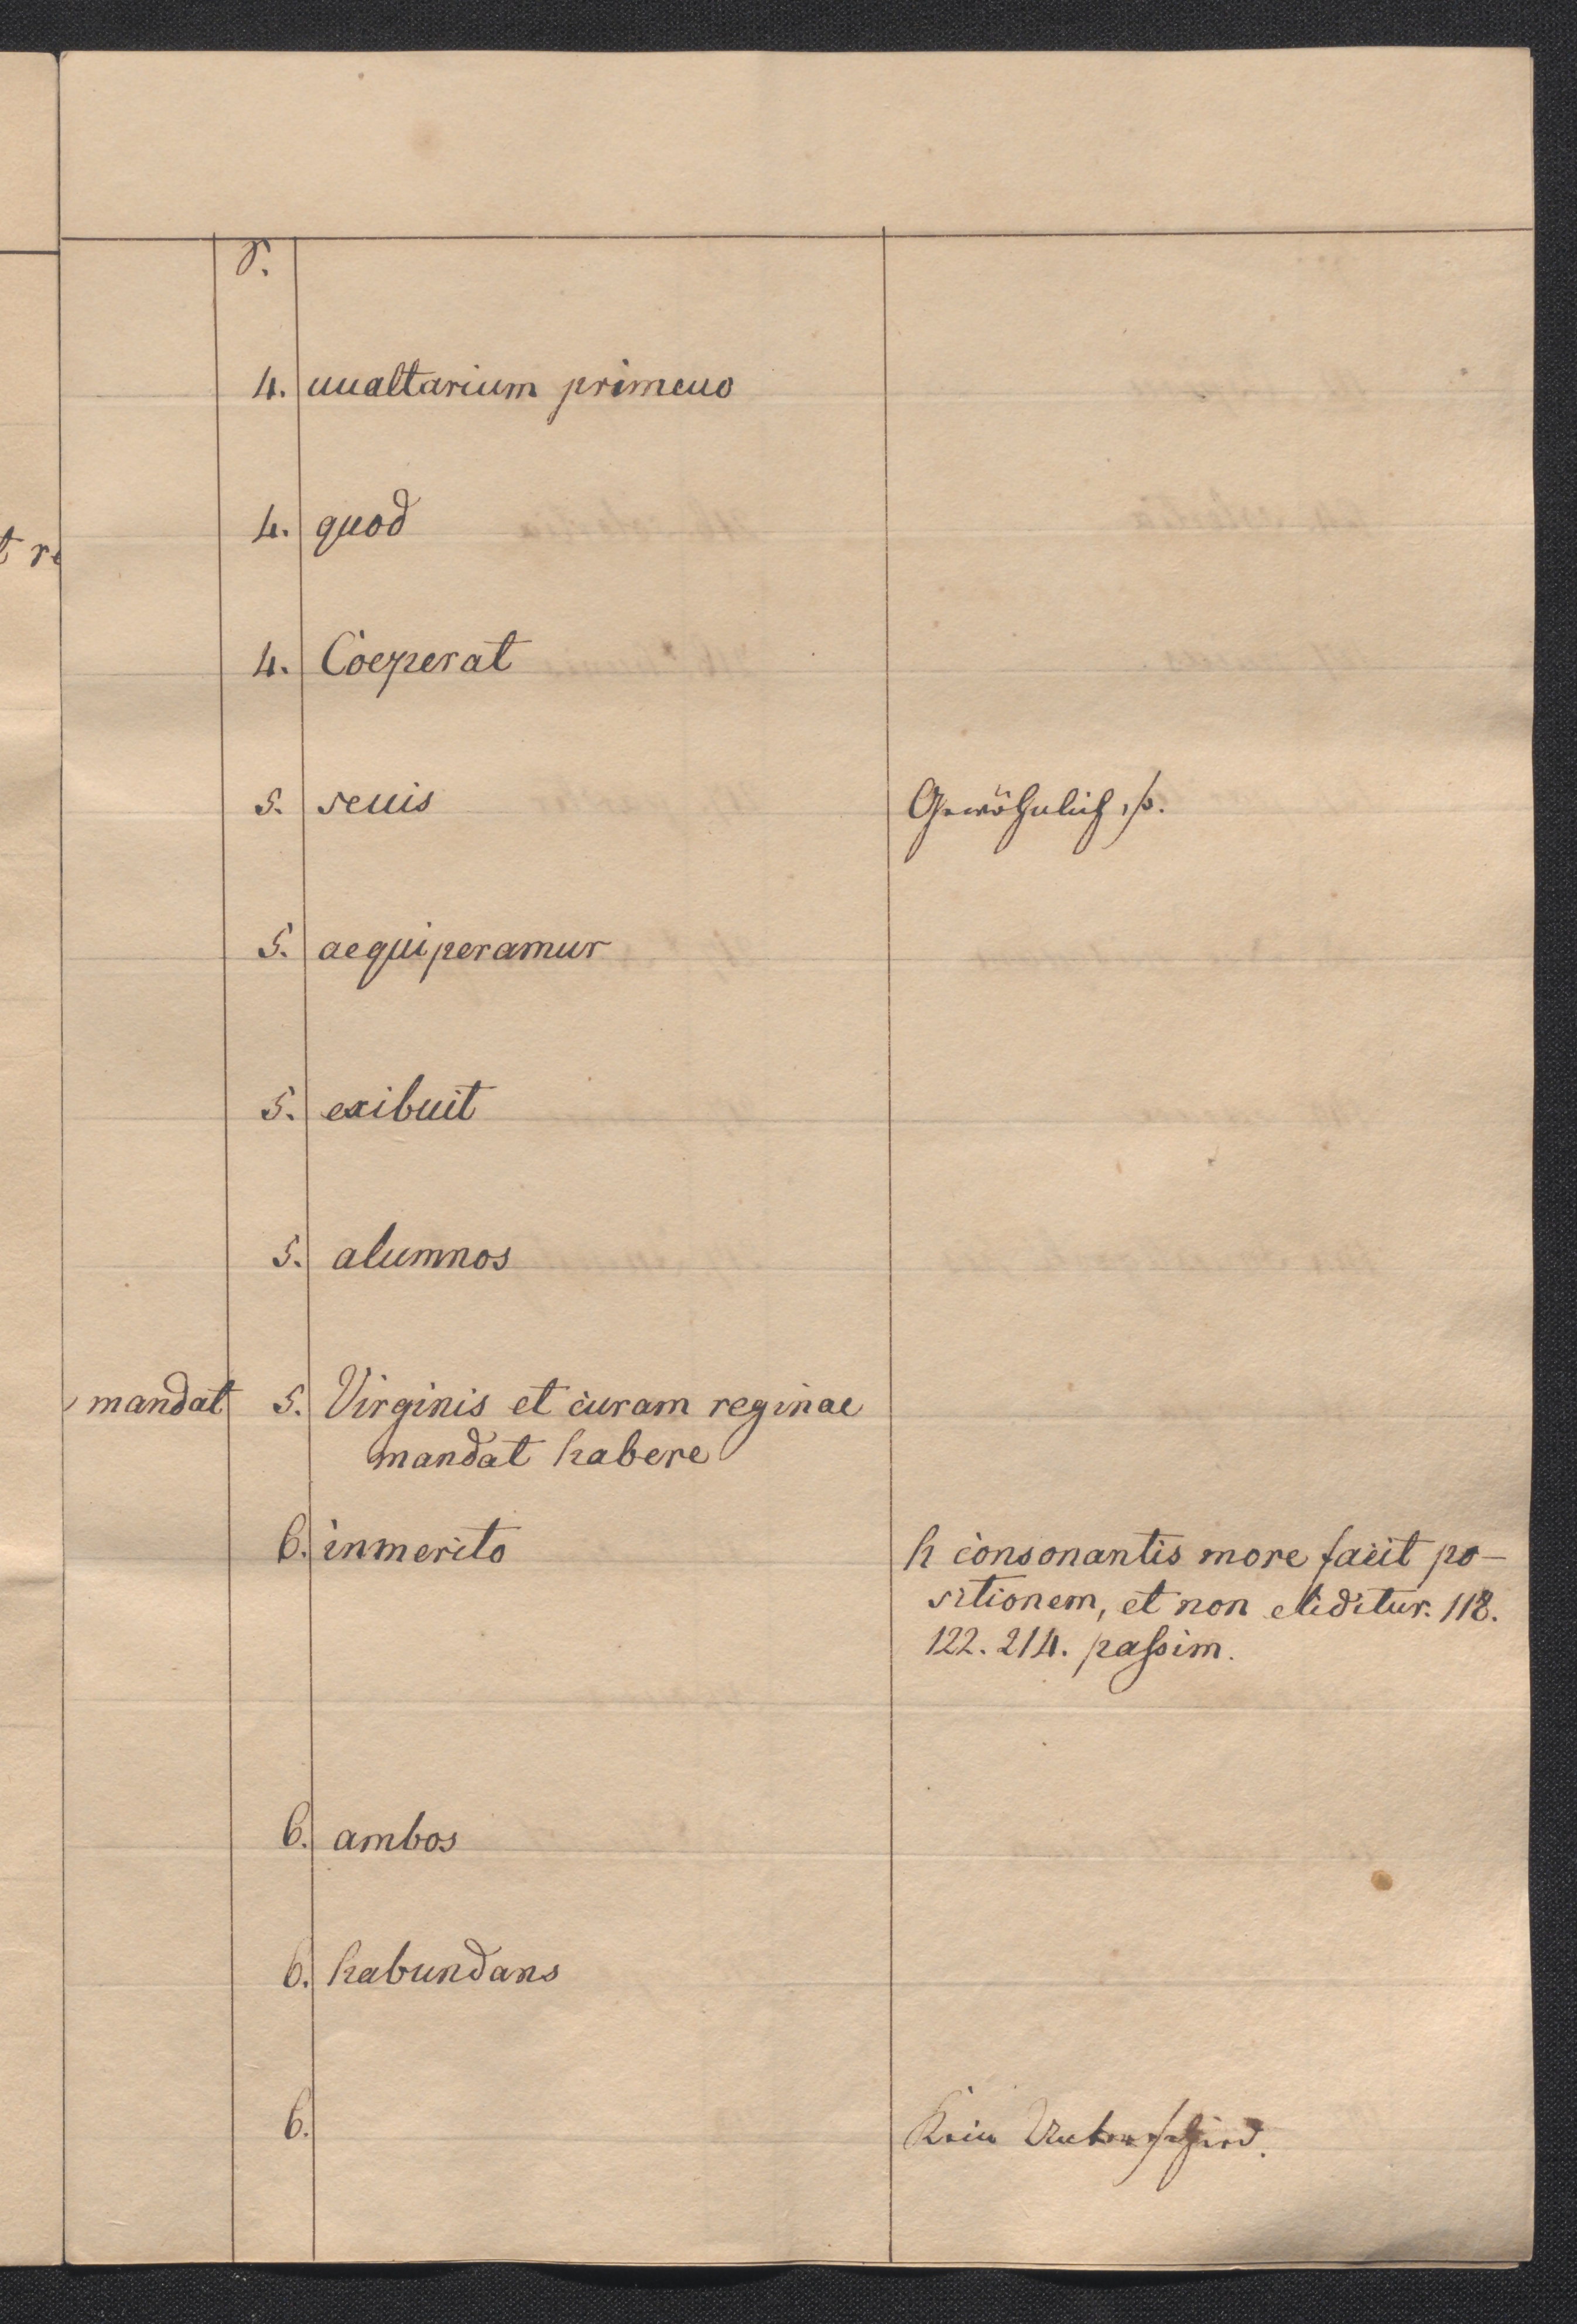 γ.
4. uualtarium primeuo
t re
4. quod
4. Coeperat
5. seuis Gewöhnlich so.
5. aequiperamur
5. exibuit
5. alumnos
mandat 5. Virginis et curam reginae
mandat habere
6. inmerito h consonantis more facit po-
sitionem, et non eliditur. 118.
122. 214. paſsim.
6. ambos
6. habundans
6. Kein Unterschied.